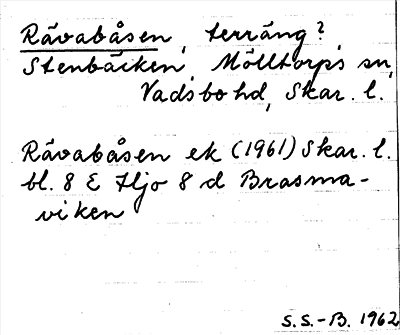 Rävabåsen, terräng?
Stenbäcken, Mölltorps sn,
Vadsbo hd, Skar. l.
Rävabåsen ek (1961) Skar. l.
bl. 8 E Hjo 8 d Brasma-
viken
S.S.-B. 1962